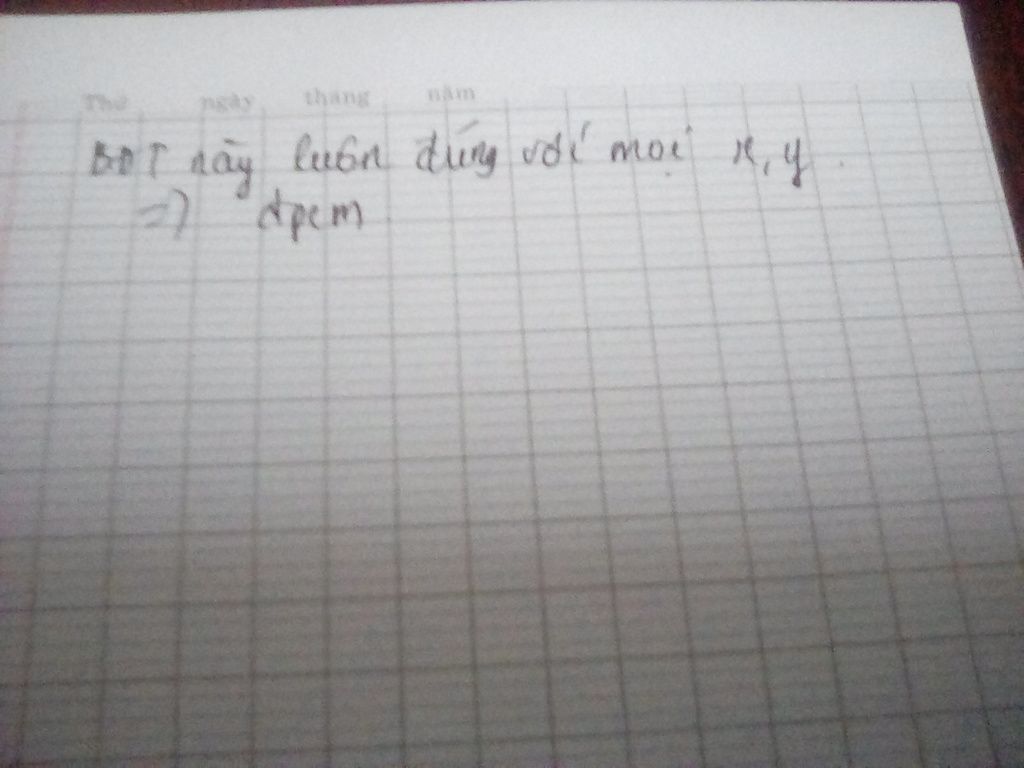 Thứ ngày tháng năm
BĐT này luôn đúng với mọi x, y.
=) đpcm